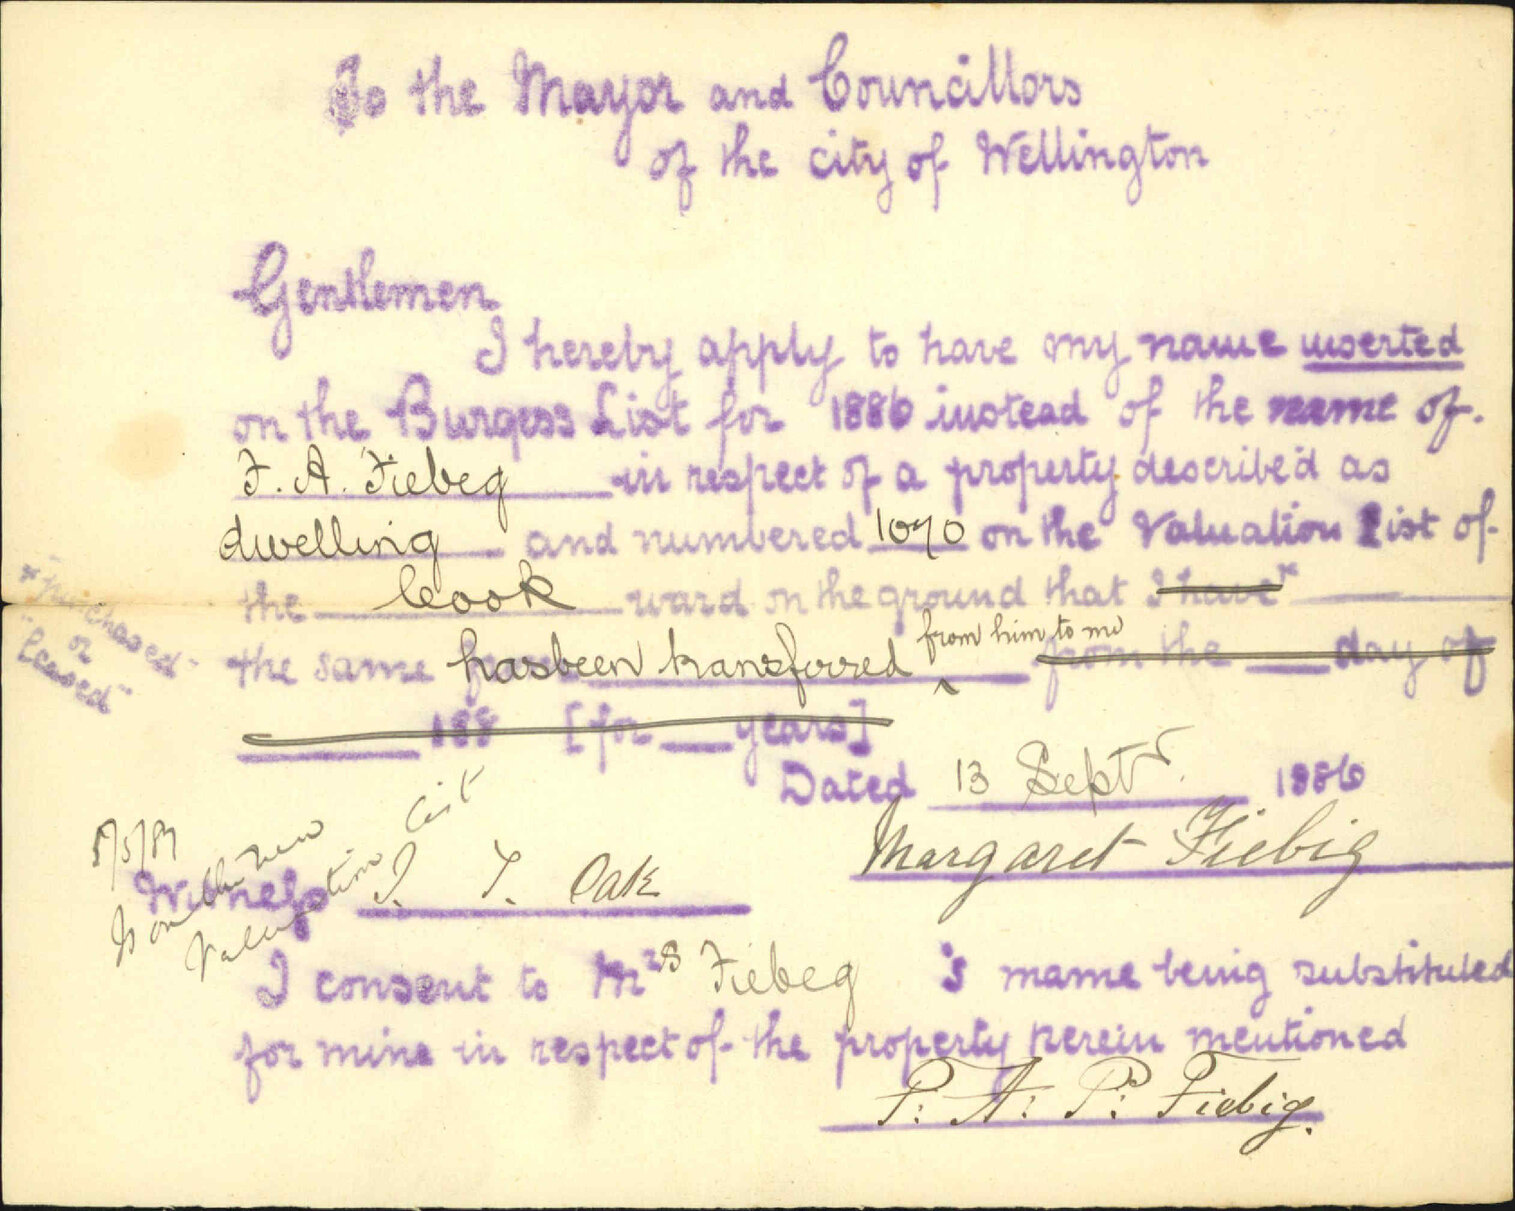 To the Mayor and Councillors
of the city of Wellington
Gentlemen
I hereby apply to have my name inserted
on the Burgess List for 1886 instead of the name of
F. A. Fiebeg in respect of a property described as
dwelling and numbered 1070 on the Valuation List of
the Cook ward on the ground that I have*
* "purchased"
or
"leased"
from him to me
the same has been transferred ^ from the ___ day of
188 [for ___ years]
Dated 13 Septr. 1886
Margaret Fiebig
5/5/87
new
Valuation List
Witness J. T. Oak
I consent to Mrs Fiebeg 's name being substituted
for mine in respect of the property herein mentioned
F: A: P: Fiebig.